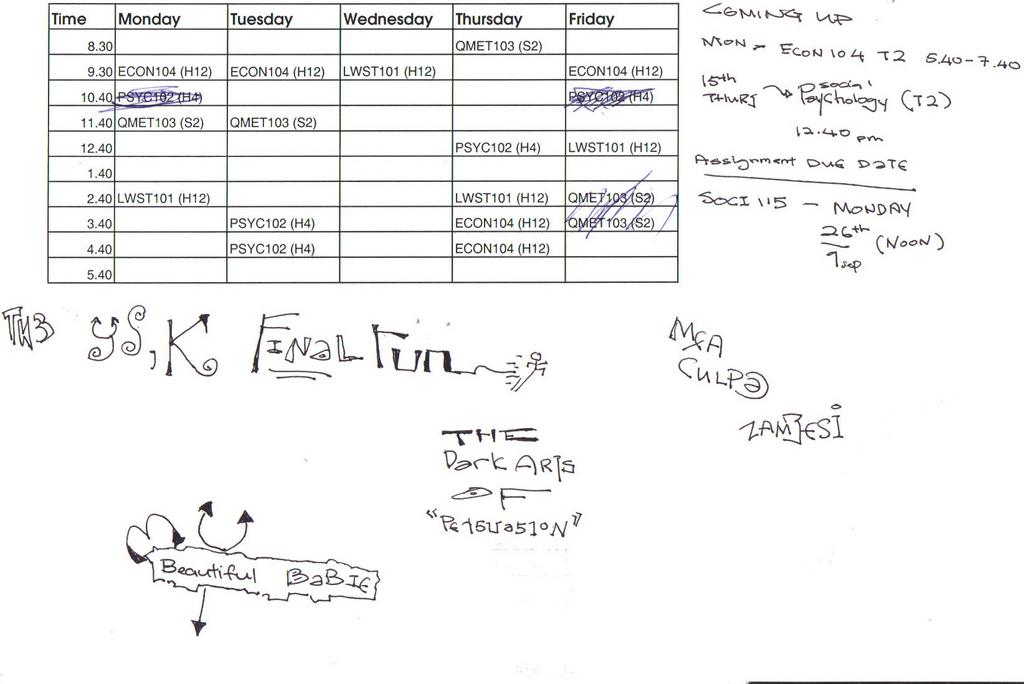 Time Monday Tuesday Wednesday Thursday Friday
8.30 QMET103 (S2)
9.30 ECON104 (H12) ECON104 (H12) LWST101 (H12) ECON104 (H12)
10.40 PSYC102 (H4) PSYC102 (H4)
11.40 QMET103 (S2) QMET103 (S2)
12.40 PSYC102 (H4) LWST101 (H12)
1.40
2.40 LWST101 (H12) LWST101 (H12) QMET103 (S2)
3.40 PSYC102 (H4) ECON104 (H12) QMET103 (S2)
4.40 PSYC102 (H4) ECON104 (H12)
5.40
COMING UP
MON - ECON 104 T2 5.40-7.40
15th social
THURS Psychology (T2)
12.40 pm
Assignment DUE DATE
SOCI 115 - MONDAY
26th (NOON)
9 sep
FINAL Fun
MEA
CULPA
ZAMBESI
THE
Dark ARTS
OF
"PersuasioN"
Beautiful BaBIE